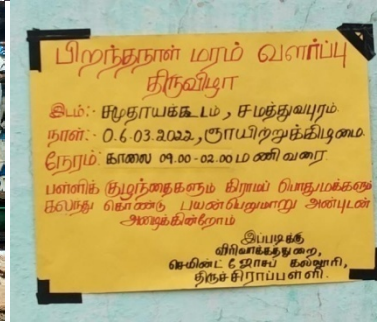 பிறந்தநாள் மரம் வளர்ப்பு
திருவிழா
இடம்:- சமுதாயக்கூடம், சமத்துவபுரம்.
நாள்:- 0.6-03.2022, ஞாயிற்றுக்கிழமை.
நேரம்: காலை 09.00-02.00 மணி வரை.
பள்ளிக் குழந்தைகளும் கிராமப் பொதுமக்களும்
கலந்து கொண்டு பயன்பெறுமாறு அன்புடன்
அழைக்கின்றோம்
இப்படிக்கு
விரிவாக்கத்துறை,
செயின்ட் ஜோசப் கல்லூரி,
திருச்சிராப்பள்ளி.